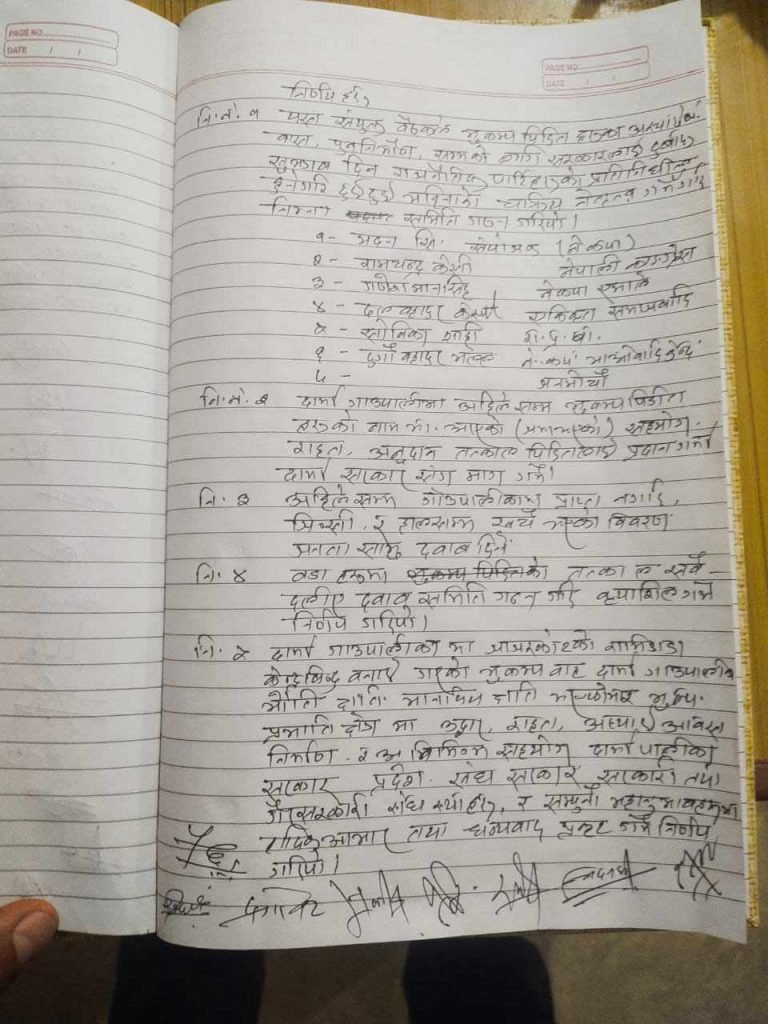 PAGE NO.
DATE / /
PAGE NO.
DATE / /
निर्णय हरु,
नि.नं. १ यस संयुक्त बैठकले भुकम्प पिडित हरुका अस्थायी
वास, पुनर्निर्माण, सम्मको लागि सरकारलाई
सुझाव दिन राजनैतिक पार्टिहरुको प्रतिनिधित्व
हुनेगरि दुई दुई महिनाको नेतृत्व गर्नेगरि
निम्न समिति गठन गरियो।
१- मदन सि. संयोजक (नेकपा)
२- रामचन्द्र केसी नेपाली काग्रेस
३- गणेश मानसिंह नेकपा एमाले
४- दल बहादुर एकिकृत समाजवादि
५- शाही रा.प्र.पा.
६- दुर्गा बहादुर ने.कपा माओवादि केन्द्र
७- जनमोर्चा
नि.नं. २ दार्मा गाउपालीका अहिले सम्म भुकम्प पिडीत
हरुको नाम मा आएको सहयोग
राहत, अनुदान तत्काल पिडितलाई प्रदान गर्न
दार्मा सरकार संग माग गर्ने।
नि. ३ अहिले सम्म गाँउपालीकामा प्राप्त नगदि,
जिन्सी, र हालसम्म खर्च भएको विवरण
जनता सामु दवाब दिने
नि. ४ वडा हरुमा तत्काल सर्व-
दलीए दवाव समिति गठन गरि कृयाशिल गर्ने
निर्णय गरियो।
नि. ५ दार्मा गाउपालीका मा जाजरकोटको रामिडाडा
केन्द्रबिन्दु बनाई गएको भुकम्प बाट दार्मा गाउपालीका
भौति क्षति मानविय क्षति भुकम्प
प्रभावि क्षेत्र मा उद्दार, राहत, अस्थाई आवास
निर्माण र अ विभिन्न सहयोग दार्मा पालीका
सरकार प्रदेश संघ सरकार सरकारी तथा
गैरसरकारी संघ सस्था हरु, र सम्पुर्ण महानुभावहरुमा
हार्दिक आभार तथा धन्यवाद प्रकट गर्ने निर्णय
गरियो।